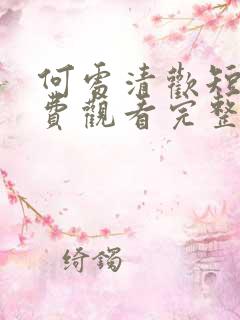 何需清歡短
費觀看完整
绮鐲